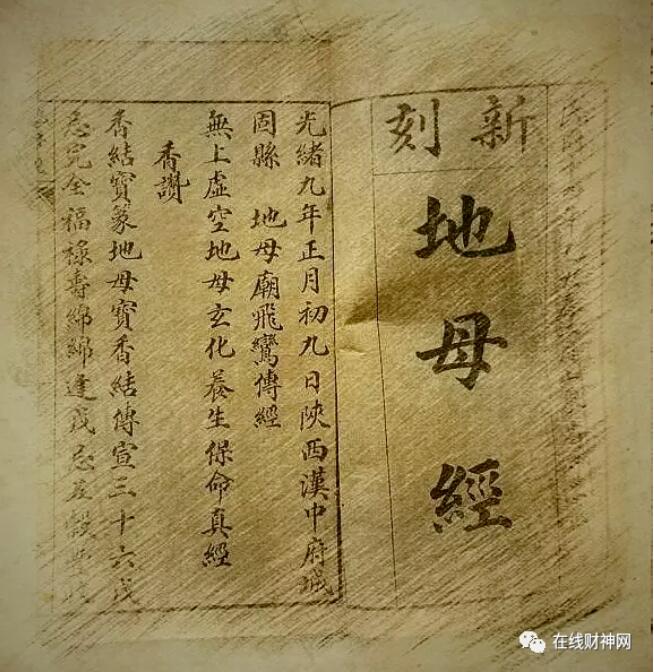 新刻
地母經
光緒九年正月初九日陝西漢中府城
固縣 地母廟飛鸞傳經
無上虛空地母玄化養生保命真經
香讚
香結寶篆地母寶香結傳宣三十六戊
忌完全福祿壽綿綿逢戊忌
在线财神网